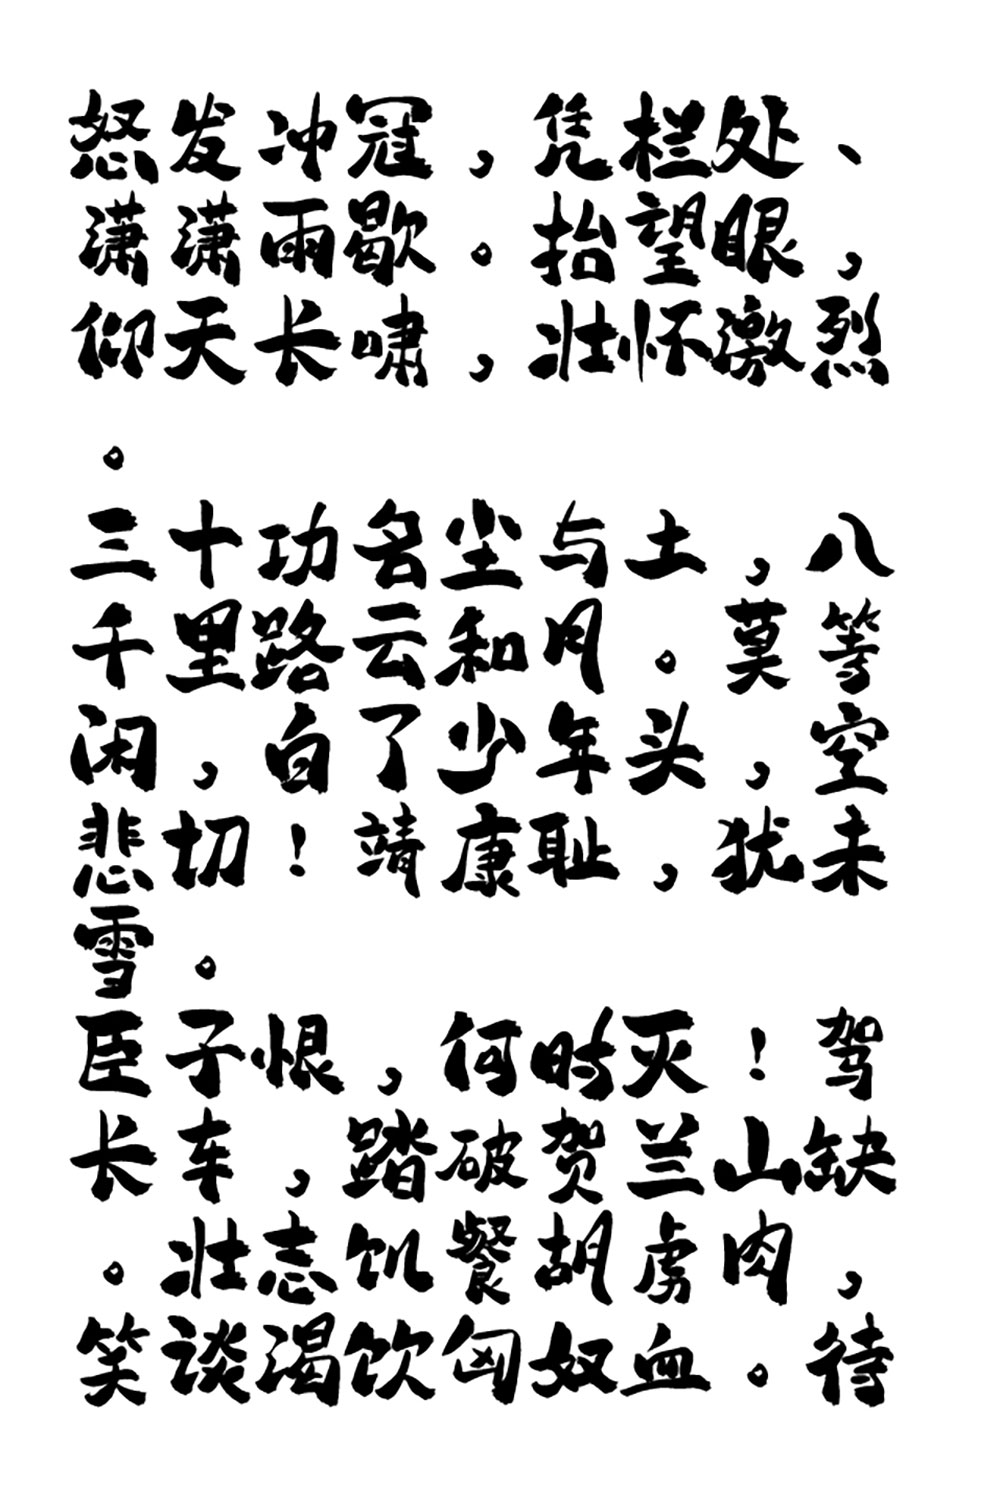 怒发冲冠，凭栏处、
潇潇雨歇。抬望眼，
仰天长啸，壮怀激烈
。
三十功名尘与土，八
千里路云和月。莫等
闲，白了少年头，空
悲切！靖康耻，犹未
雪。
臣子恨，何时灭！驾
长车，踏破贺兰山缺
。壮志饥餐胡虏肉，
笑谈渴饮匈奴血。待